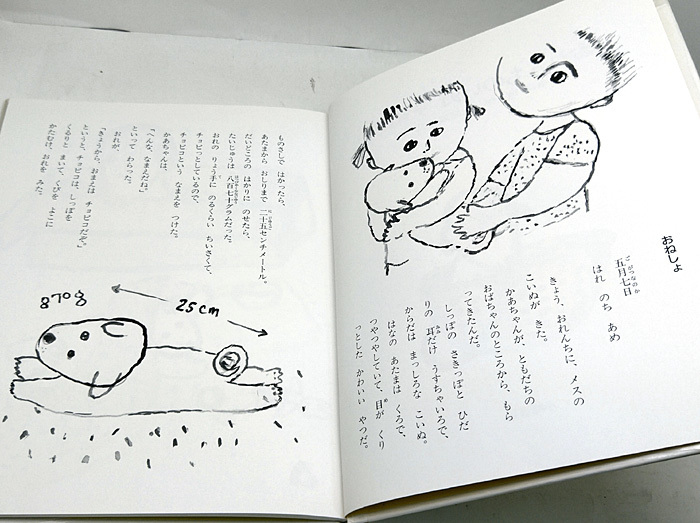 おねしょ
五月七日
ごがつなのか
はれ　のち　あめ
きょう、おれんちに、メスの
こいぬが　きた。
かあちゃんが、ともだちの
おばちゃんのところから、もら
ってきたんだ。
しっぽの　さきっぽと　ひだ
りの　耳だけ　うすちゃいろで、
からだは　まっしろな　こいぬ。
はなの　あたまは　くろで、
つやつやしていて、目が　くり
っとした　かわいい　やつだ。
ものさしで　はかったら、
あたまから　おしりまで　二十五センチメートル。
だいどころの　はかりに　のせたら、
たいじゅうは　八百七十グラムだった。
おれの　りょう手に　のるくらい　ちいさくて、
チョピッとしているので、
かあちゃんは、
チョピコという　なまえを　つけた。
「へんな、なまえだね」
といって　わらった。
おれが、
「きょうから、おまえは　チョピコだぞ」
というと、チョピコは、しっぽを
くるりと　まいて、くびを　よこに
かたむけ、おれを　みた。
870g
25cm